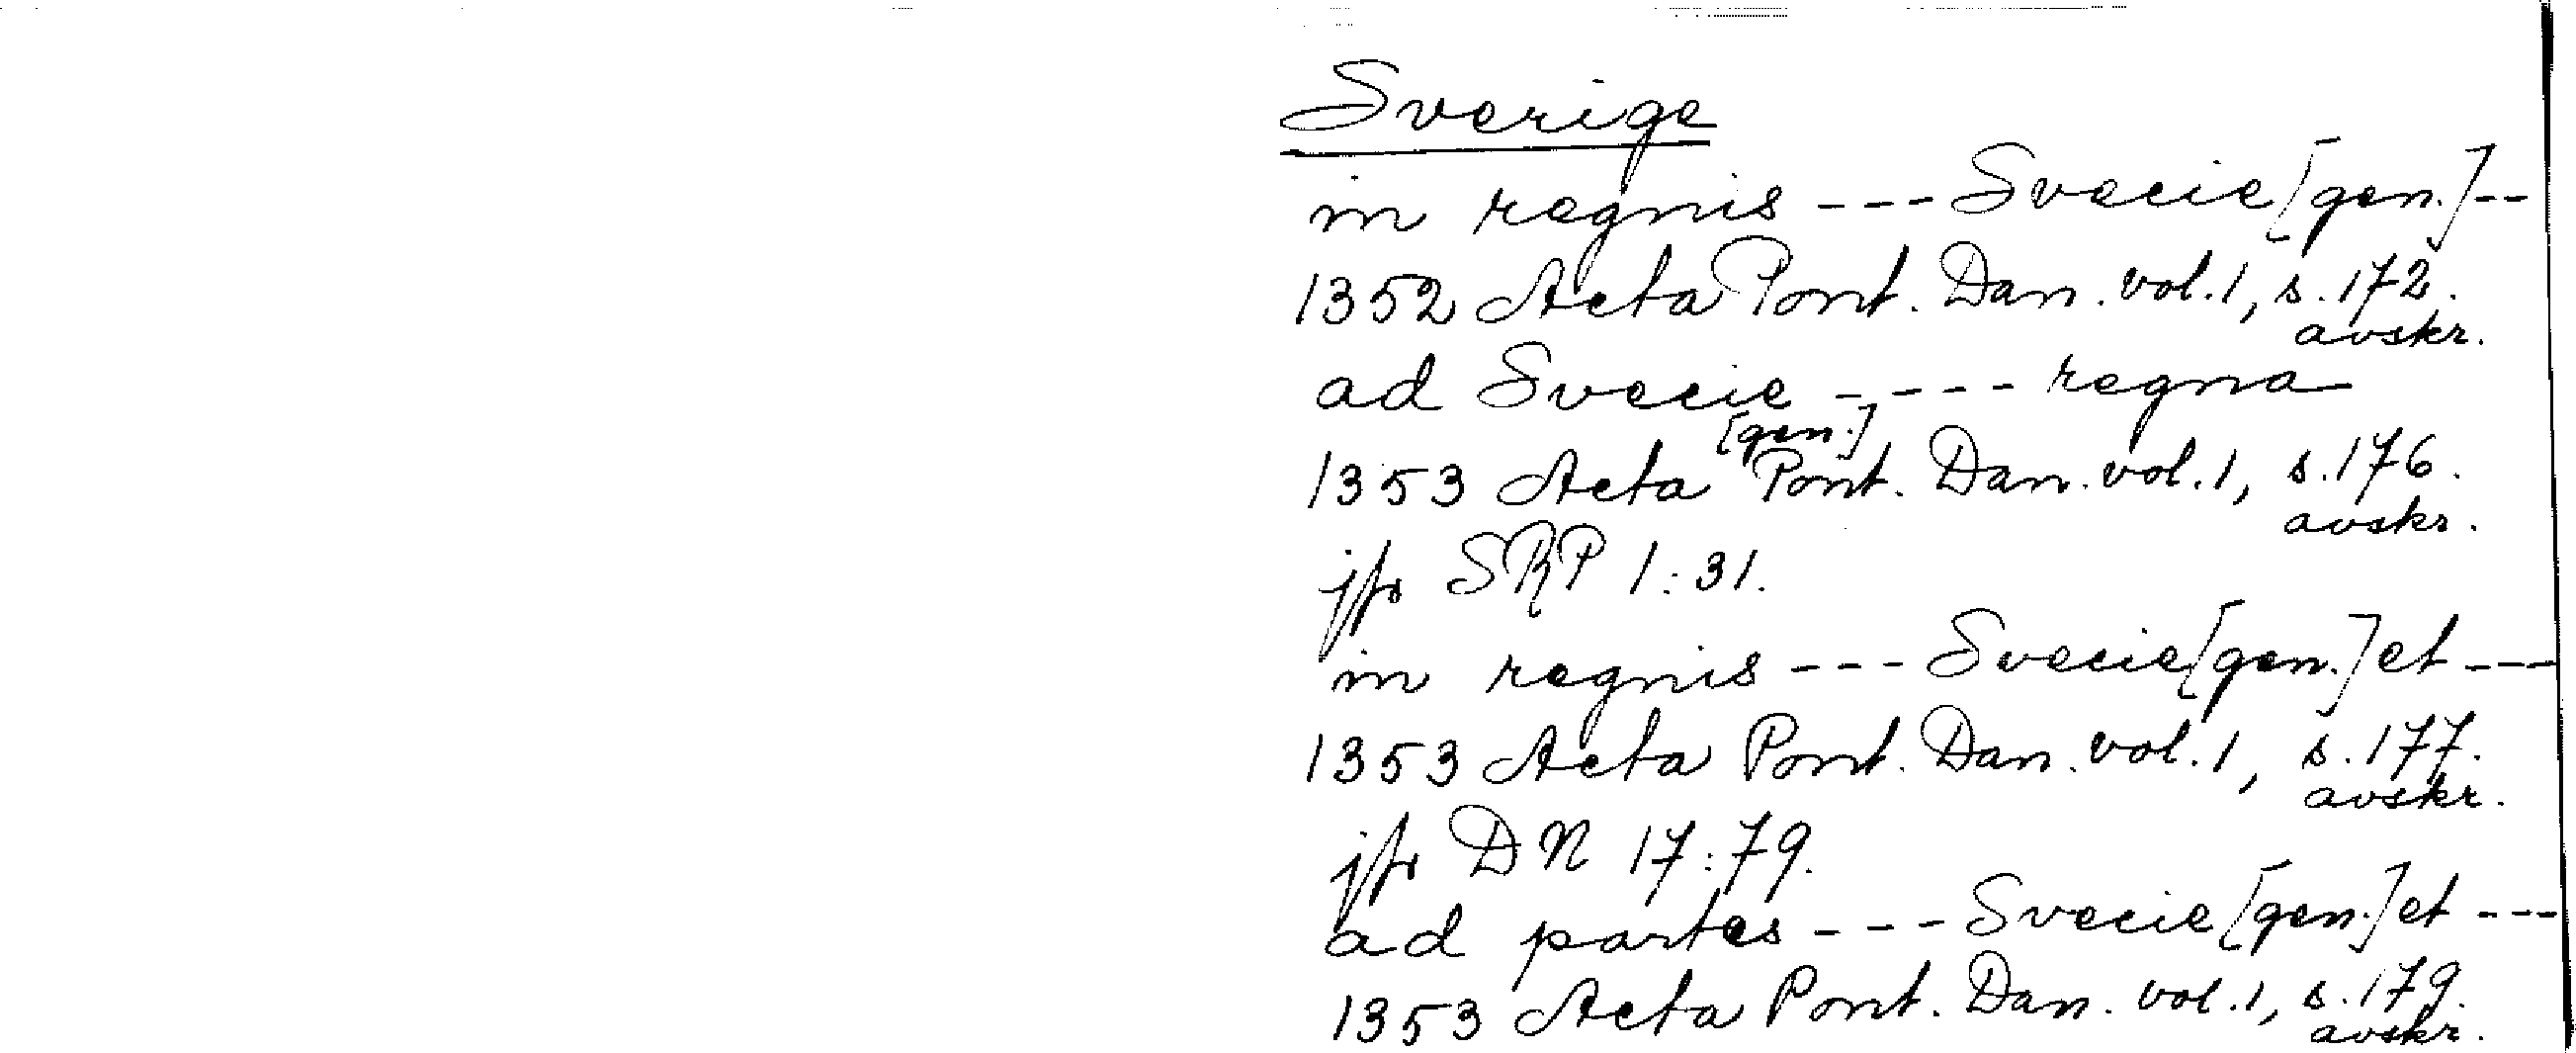 Sverige
in regnis --- Svecie [gen.] --
1352 Acta Pont. Dan. vol. 1, s. 172.
avskr.
ad Svecie ---- regna
[gen.]
1353 Acta Pont. Dan. vol. 1, s. 176.
avskr.
jfr SRP 1:31.
in regnis --- Svecie [gen.] et ---
1353 Acta Pont. Dan. vol. 1, s. 177.
avskr.
jfr DN 17:79.
ad partes --- Svecie [gen.] et ---
1353 Acta Pont. Dan. vol. 1, s. 179.
avskr.